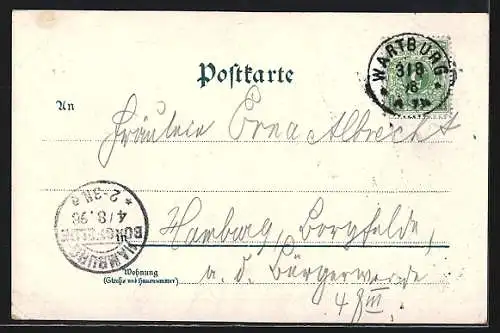 Postkarte
WARTBURG
3/8
An
Fräulein Erna Albrecht
Hamburg, Borgfelde,
a. d. Bürgerweide
48 III
Wohnung
(Straße und Hausnummer)
HAMBURG
BORGFELDE
4/8.96
2-3N